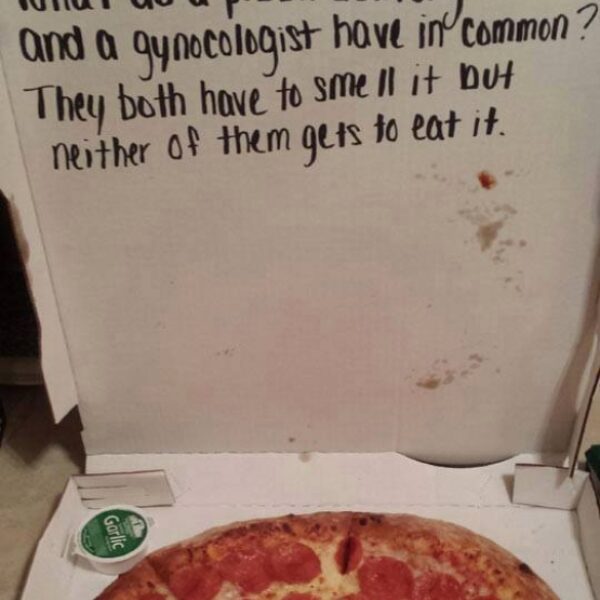 and a gynocologist have in common?
They both have to smell it but
neither of them gets to eat it.
Garlic